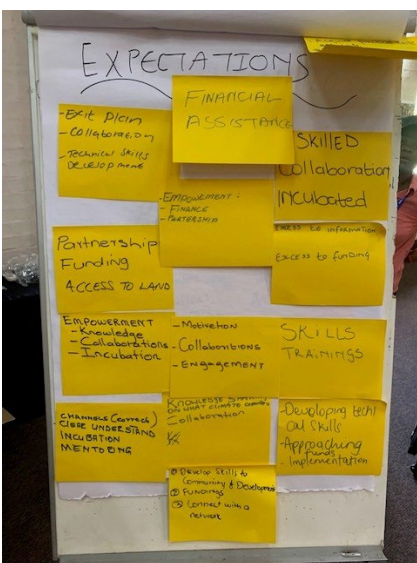 EXPECTATIONS
FINANCIAL
ASSISTANCE
- Exit Plan
- Collaboration
- Technical Skills
Development
SKILLED
Collaboration
INCUBATED
- EMPOWERMENT:
- FINANCE
- PARTERSHIP
Partnership
Funding
ACCESS TO LAND
to information
Excess to funding
EMPOWERMENT
- Knowledge
- Collaborations
- Incubation
- Motivation
- Collaboritions
- ENGAGEMENT
SKILLS
TRAININGS
CHANNELS (correct)
CLEAR UNDERSTAND
INCUBATION
MENTORING
KNOWLEDGE
ON WHAT CLIMATE
Collaboration
- Developing techi
cal Skills
- Approaching
funds
- Implementation
① Develop Skills to
Community & Development
② FUNDINGS
③ Connect with a
network